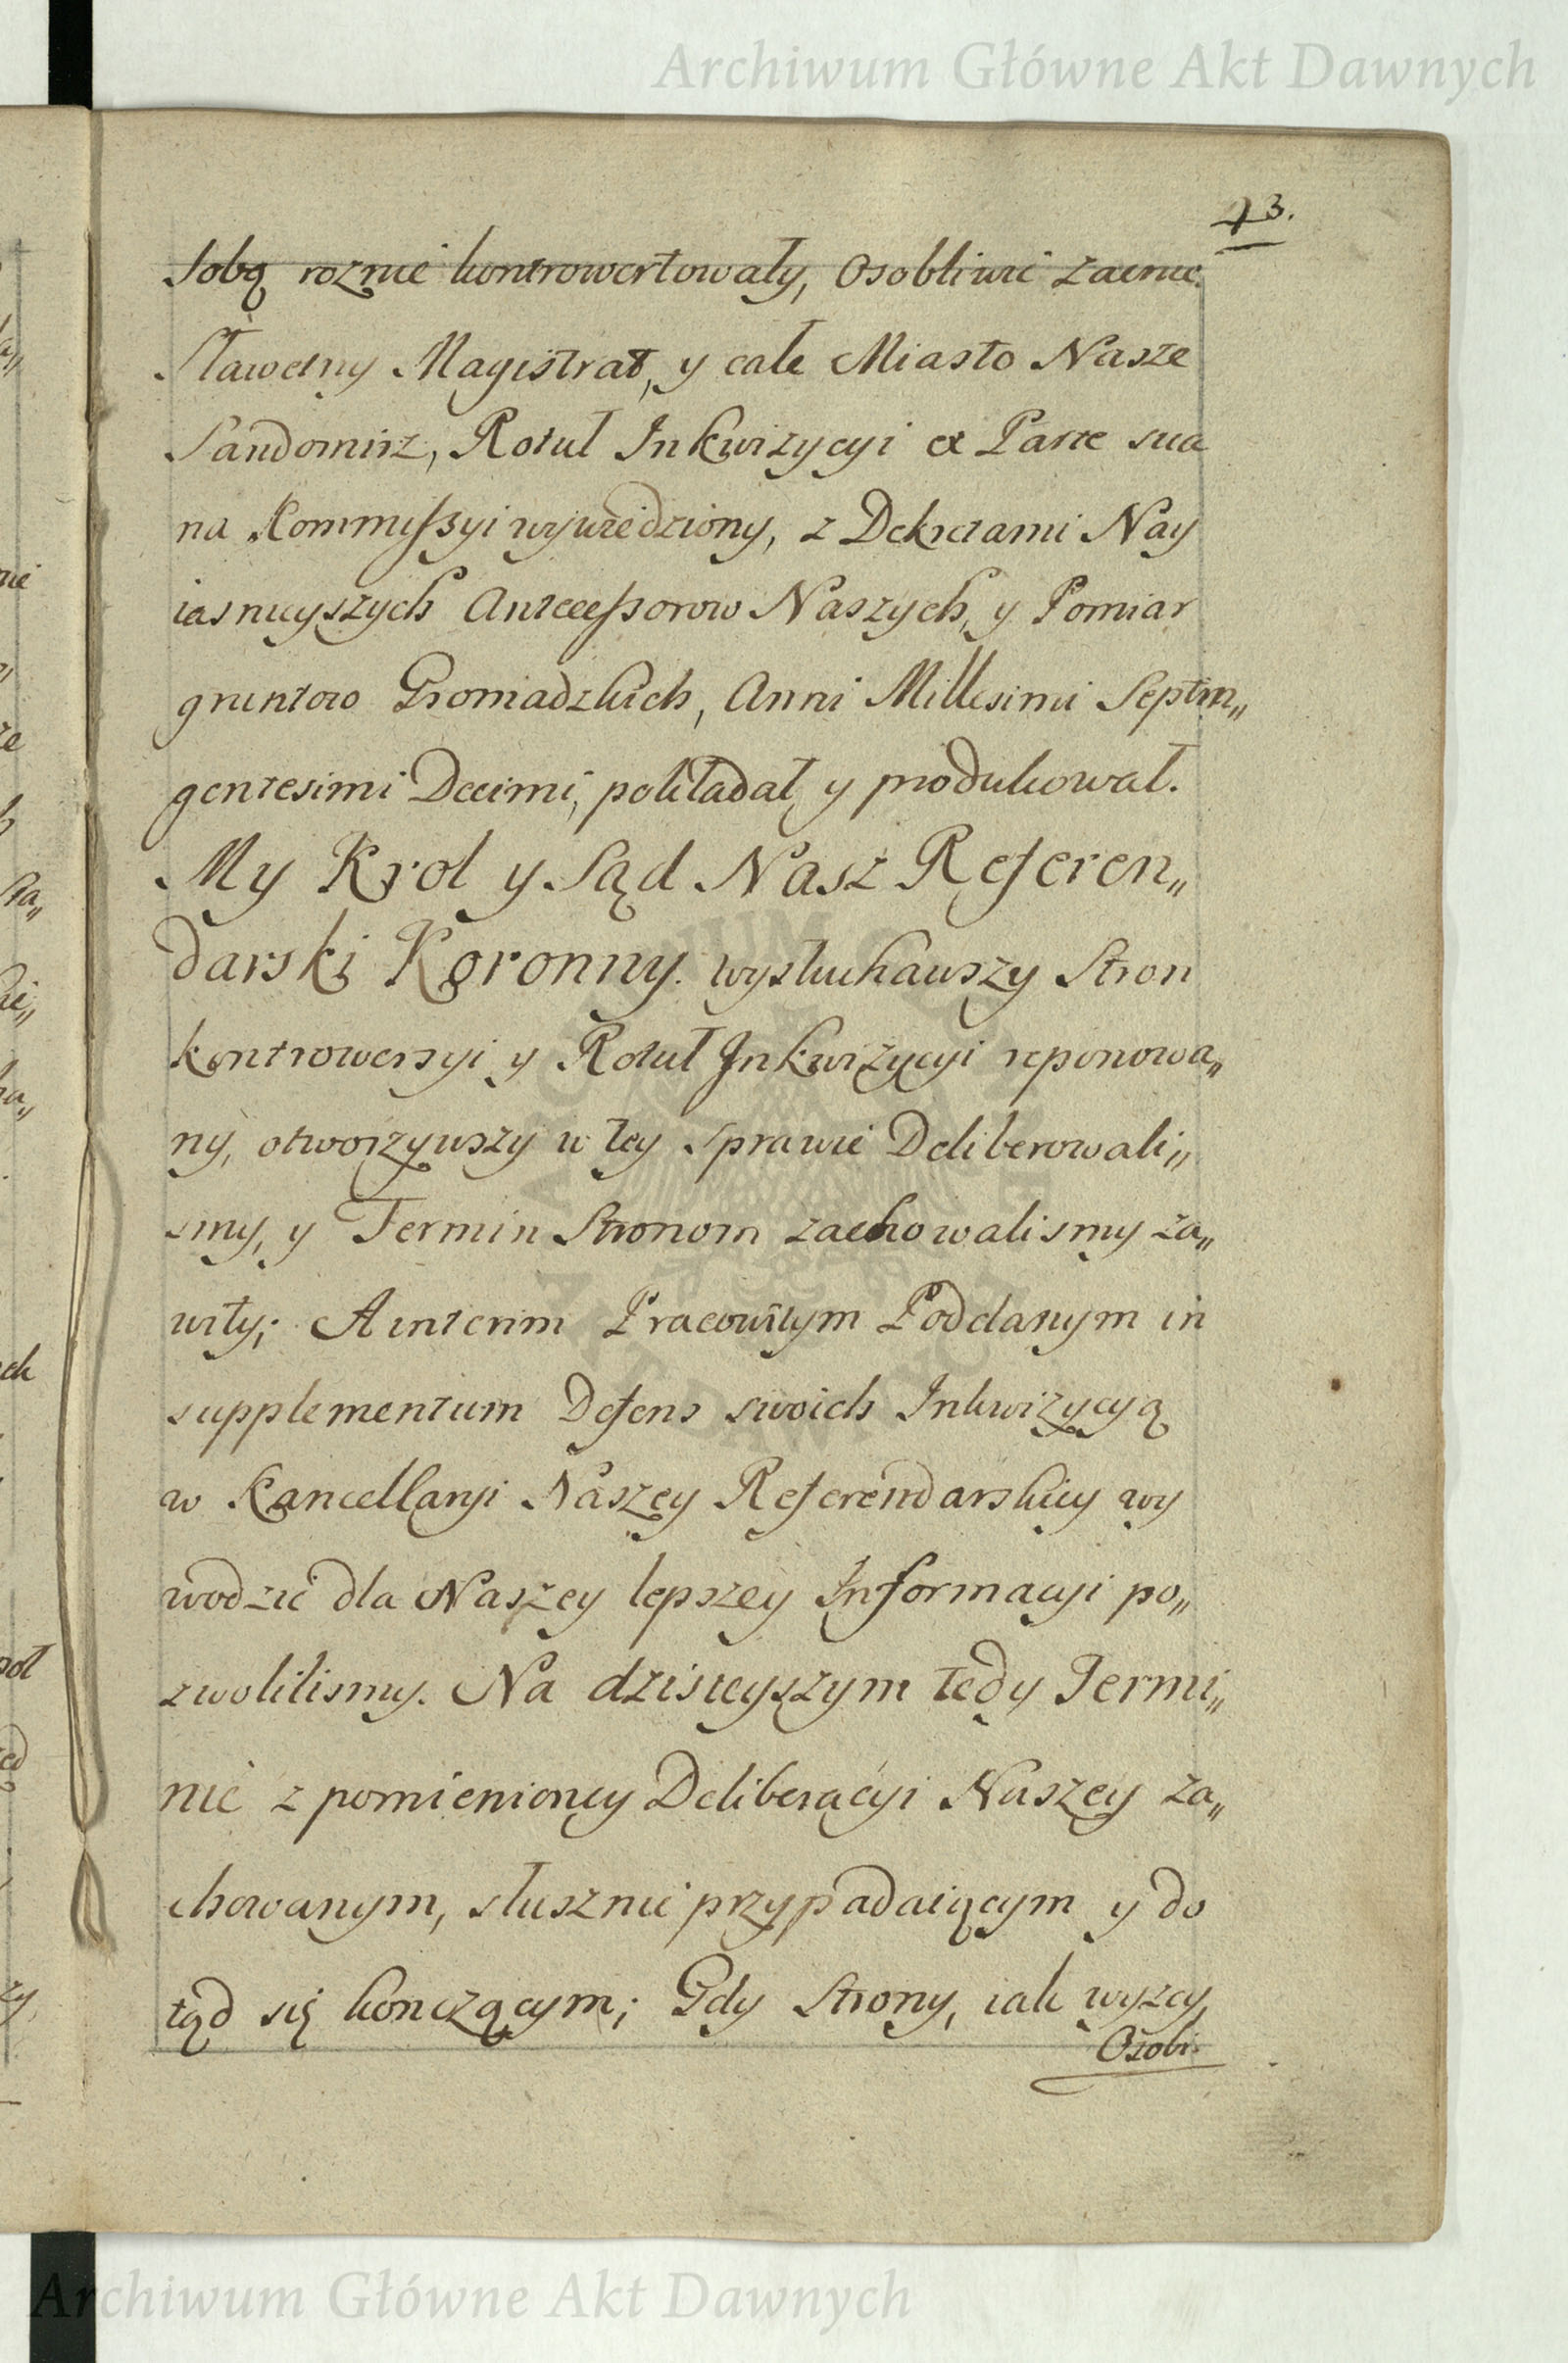 Archiwum Główne Akt Dawnych
73.
Sobą roznie kontrowertowały, Osobliwie zacnie
Sławetny Magistrat, y całe Miasto Nasze
Sandomirz, Rotuł Inkwizycyi ex Parte sua
na Kommissyi wywiedziony, z Dekretami Nay
iasnieyszych Antecessorow Naszych, y Pomiar
gruntow Gromadzkich, Anni Millesimi Septin„
gentesimi Decimi, pokładał y produkował.
My Krol y Sąd Nasz Referen„
darski Koronny. wysłuchawszy Stron
kontrowersyi y Rotuł Inkwizycyi reponowa„
ny, otworzywszy w tey Sprawie Deliberowali„
smy, y Termin Stronom zachowalismy za„
wity; A interim Pracowitym Poddanym in
supplementum Defens swoich Inkwizycyą
w Kancellaryi Naszey Referendarskiey wy
wodzić dla Naszey lepszey Informacyi po„
zwolilismy. Na dzisieyszym tedy Termi„
nie z pomienioney Deliberacyi Naszey za„
chowanym, słusznie przypadaiącym y do
tąd się konczącym; Gdy Strony, iak wyzey
Osobi
Archiwum Główne Akt Dawnych